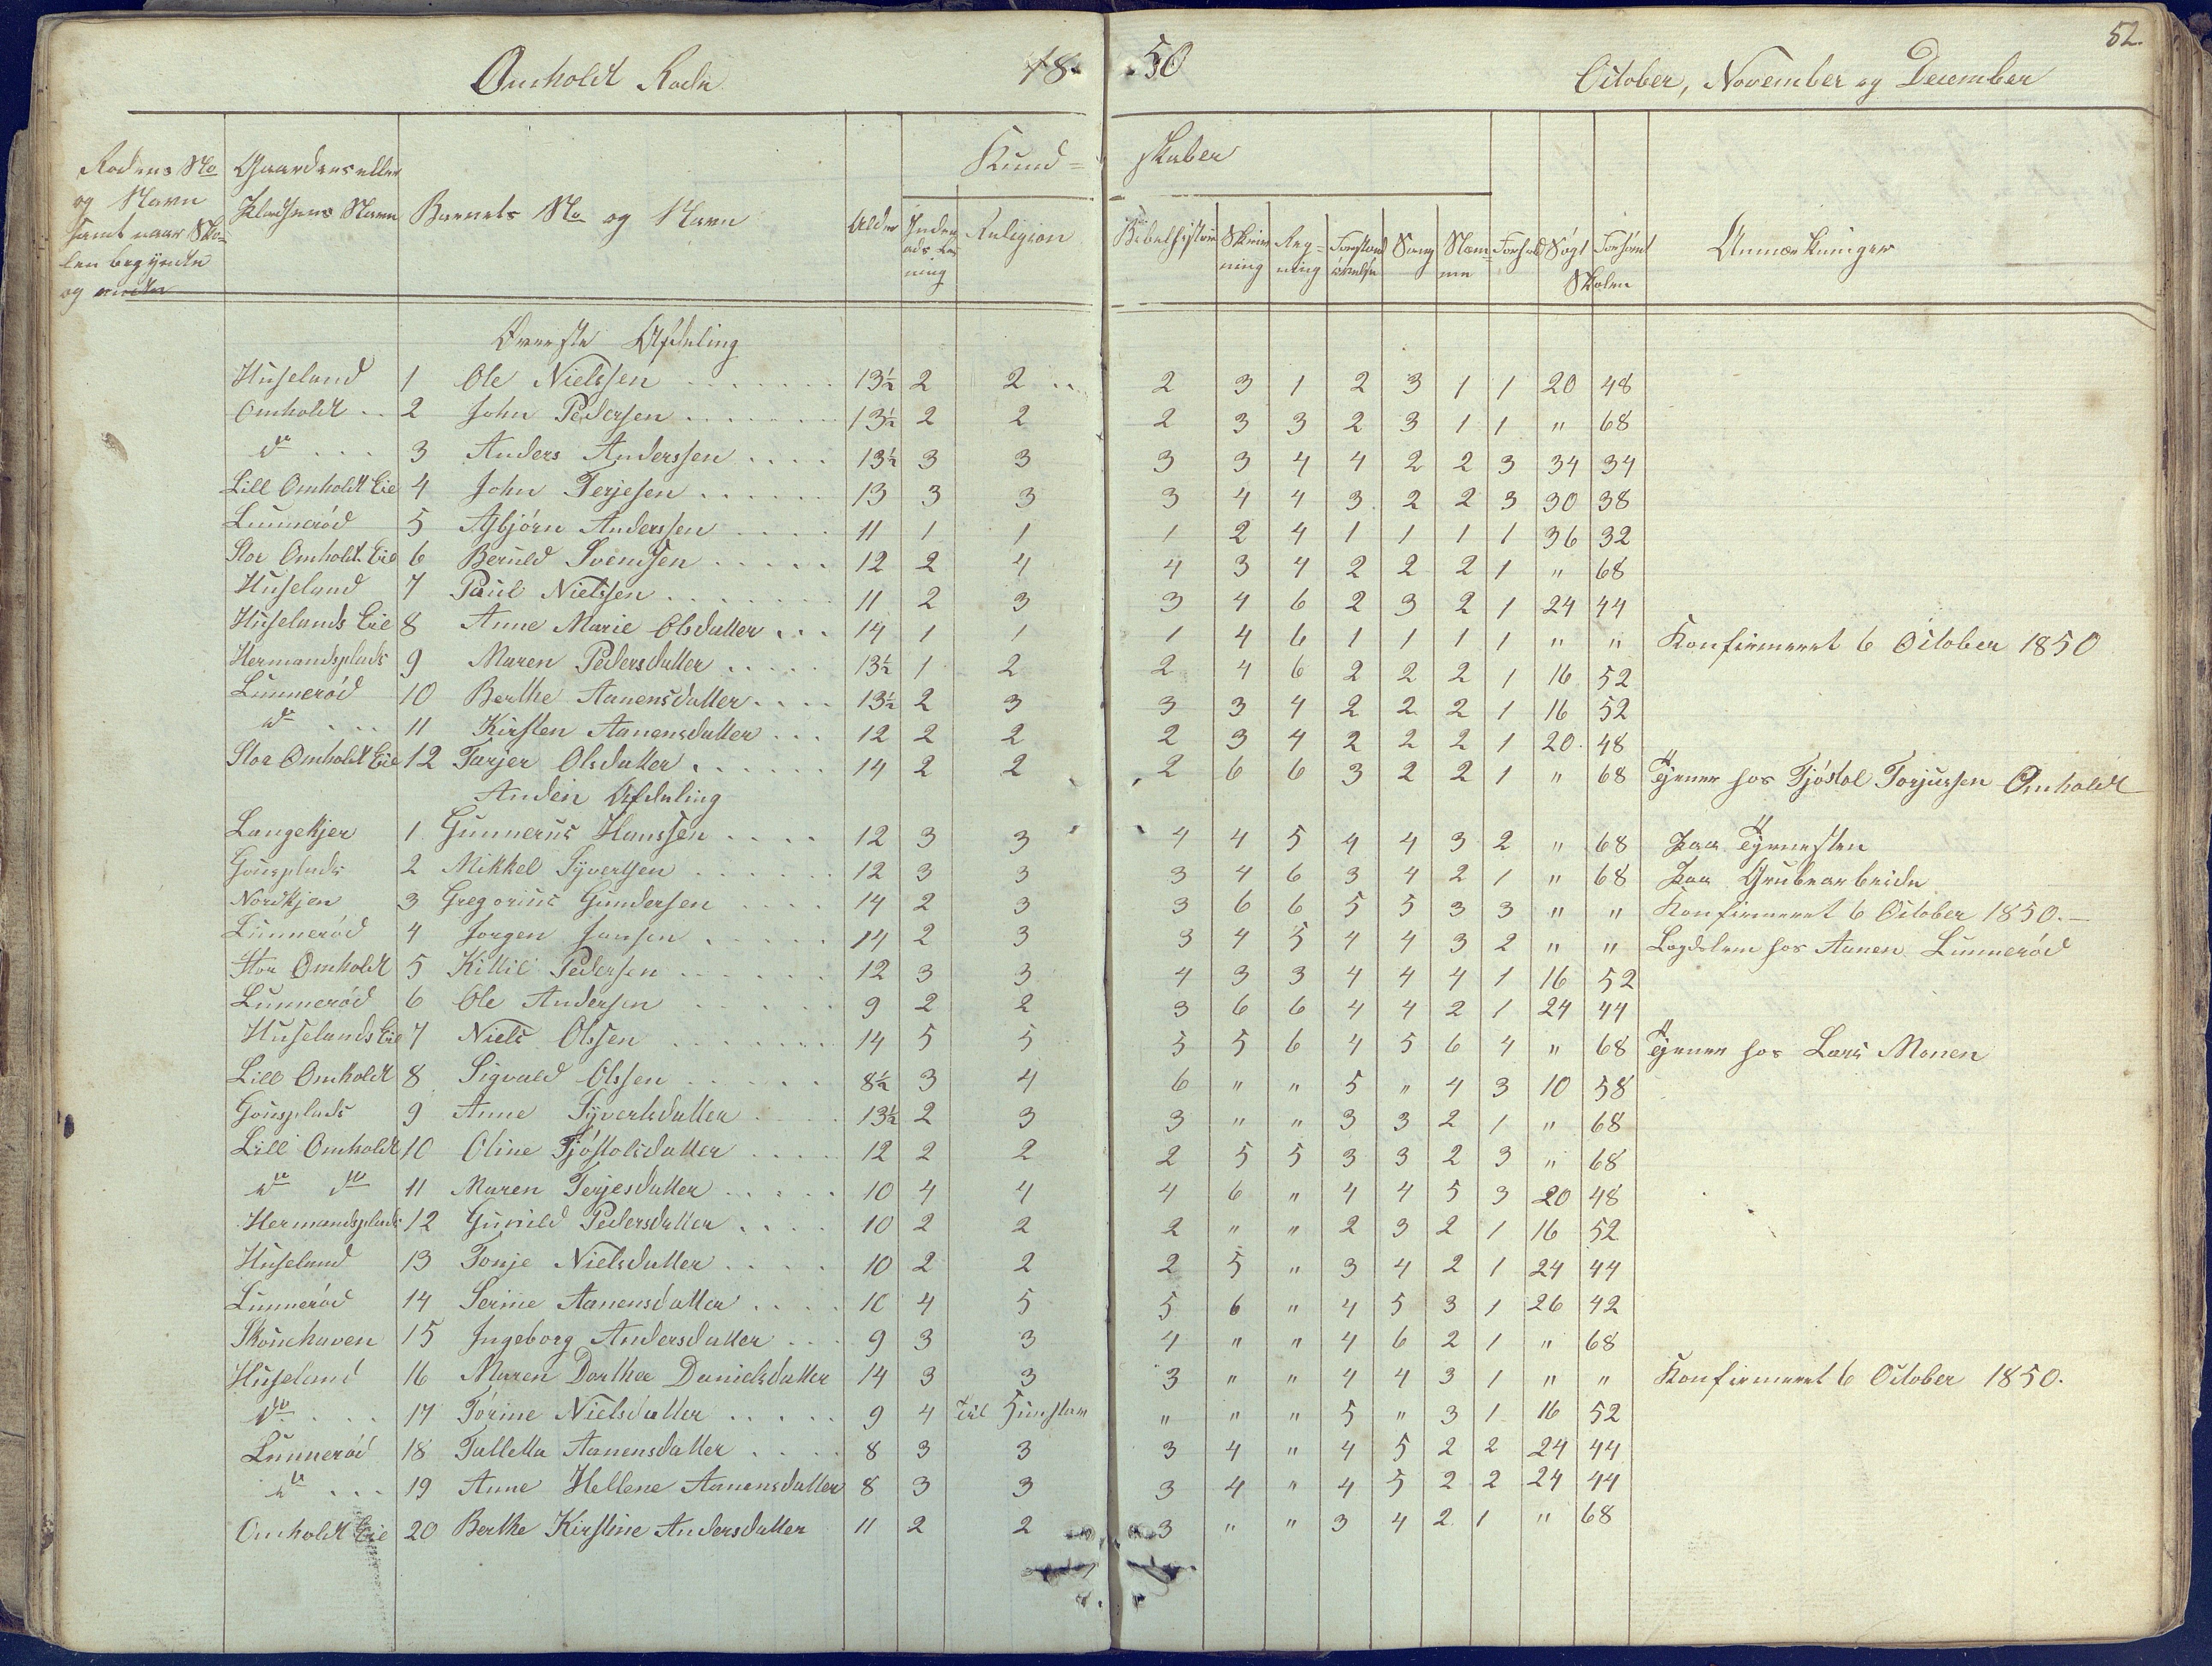 Omholdt Rode 1850 October, November og December 52.
Rodens No og Navn samt naar Skolen begyndte og endte
Gaardens eller Pladsens Navn
Barnets No og Navn
Alder
Kundskaber
Religion
Bibelhistorie
Skrivning
Regning
Forstandsøvelse
Sang
Forhold
Søgt
Forsømt
Skolen
Anmærkninger
Øverste Afdeling
Huseland 1 Ole Nielssen 13½ 2 2 2 3 1 2 3 1 1 20 48
Omholdt 2 John Pedersen 13½ 2 2 2 3 3 2 3 1 1 " 68
do 3 Anders Anderssen 13½ 3 3 3 3 4 4 2 2 3 34 34
Lill Omholdt Eie 4 John Terjesen 13 3 3 3 4 4 3 2 2 3 30 38
Lunnerød 5 Asbjørn Anderssen 11 1 1 1 2 4 1 1 1 1 36 32
Stor Omholdt Eie 6 Beruld Svendsen 12 2 4 4 3 4 2 2 2 1 " 68
Huseland 7 Paul Nielssen 11 2 3 3 4 6 2 3 2 1 24 44
Huselands Eie 8 Anne Marie Olsdatter 14 1 1 1 4 6 1 1 1 1 " " Konfirmeret 6 October 1850
Hermandsplads 9 Maren Pedersdatter 13½ 1 2 2 4 6 2 2 2 1 16 52
Lunnerød 10 Berthe Aanensdatter 13½ 2 3 3 3 4 2 2 2 1 16 52
do 11 Kirsten Aanensdatter 12 2 2 2 3 4 2 2 2 1 20 48
Stor Omholdt Eie 12 Tarjer Olsdatter 14 2 2 2 6 6 3 2 2 1 " 68 Tjener hos Tjøstol Torjussen Omholdt
Anden Afdeling
Langekjer 1 Gunnerus Hanssen 12 3 3 4 4 5 4 4 3 2 " 68 Paa Tjenesten
Gousplads 2 Mikkel Syvertsen 12 3 3 3 4 6 3 4 2 1 " 68 Paa Grubearbeide
Nordkjen 3 Gregorius Gundersen 14 2 3 3 6 6 5 5 3 3 " " Konfirmeret 6 October 1850.
Lunnerød 4 Jørgen Jansen 14 2 3 3 4 5 4 4 3 2 " " Lægdslem hos Aanen Lunnerød
Stor Omholdt 5 Kittil Pedersen 12 3 3 4 3 3 4 4 4 1 16 52
Lunnerød 6 Ole Andersen 9 2 2 3 6 6 4 4 2 1 24 44
Huselands Eie 7 Niels Olssen 14 5 5 5 5 6 4 5 6 4 " 68 Tjener hos Lars Monen
Lill Omholdt 8 Sigvald Olssen 8½ 3 4 6 " " 5 " 4 3 10 58
Gousplads 9 Anne Syvertsdatter 13½ 2 3 3 " " 3 3 2 1 " 68
Lill Omholdt 10 Oline Tjøstolsdatter 12 2 2 2 5 5 3 3 2 3 " 68
do do 11 Maren Terjesdatter 10 4 4 4 6 " 4 4 5 3 20 48
Hermandsplads 12 Gunild Pedersdatter 10 2 2 2 " " 2 3 2 1 16 52
Huseland 13 Tonje Nielsdatter 10 2 2 2 5 " 3 4 2 1 24 44
Lunnerød 14 Serine Aanensdatter 10 4 5 5 6 " 4 5 3 1 26 42
Skouehaven 15 Ingeborg Andersdatter 9 3 3 4 " " 4 6 2 1 " 68
Huseland 16 Maren Dorthea Danielsdatter 14 3 3 3 " " 4 4 3 1 " " Konfirmeret 6 October 1850.
do 17 Torine Nielsdatter 9 4 til 5 " " " 5 " 3 1 16 52
Lunnerød 18 Talletta Aanensdatter 8 3 3 3 4 " 4 5 2 2 24 44
do 19 Anne Hellene Aanensdatter 8 3 3 3 4 " 4 5 2 2 24 44
Omholdt Eie 20 Berthe Kirstine Andersdatter 11 2 2 3 " " 3 4 2 1 " 68